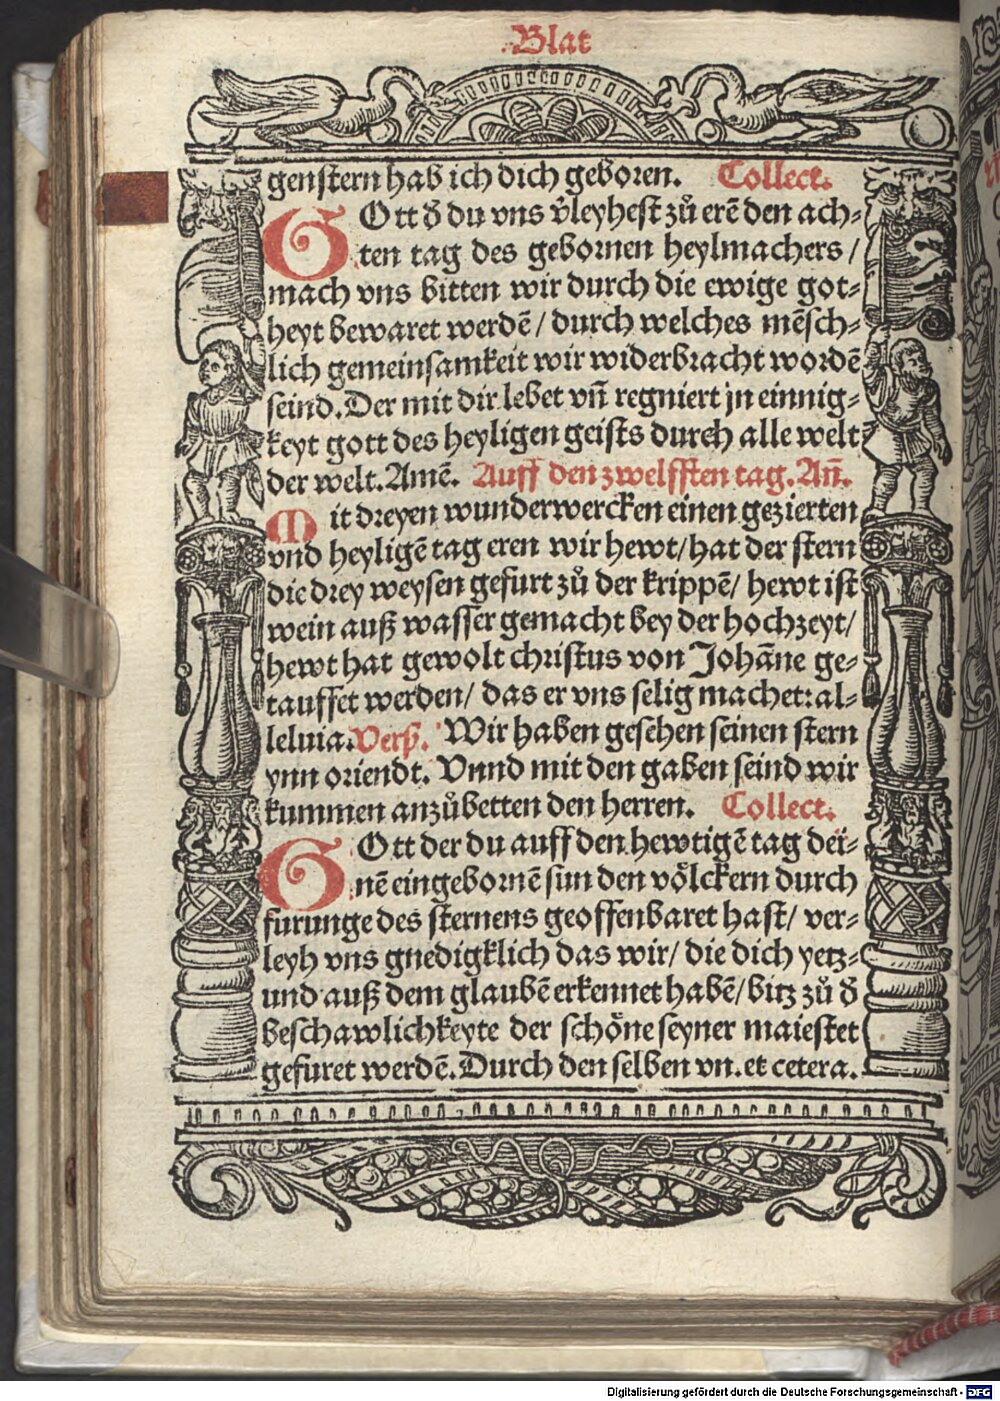 Blat
genstern hab ich dich geboren. Collect.
GOtt ð du vns v̊leyhest zů erē den ach⸗
ten tag des gebornen heylmachers /
mach vns bitten wir durch die ewige got⸗
heyt bewaret werdē / durch welches mēsch⸗
lich gemeinsamkeit wir widerbracht wordē
seind. Der mit dir lebet vñ regniert jn einnig⸗
keyt gott des heyligen geists durch alle welt
der welt. Amē. Auff den zwelfften tag. Añ.
Mit dreyen wunderwercken einen gezierten
vnd heyligē tag eren wir hewt / hat der stern
die drey weysen gefurt zů der krippē / hewt ist
wein auß wasser gemacht bey der hochzeyt /
hewt hat gewolt christus von Johāne ge⸗
tauffet werden / das er vns selig machet: al⸗
leluia. Verß. Wir haben gesehen seinen stern
ynn oriendt. Vnnd mit den gaben seind wir
kummen anzůbetten den herren. Collect.
GOtt der du auff den hewtigē tag dei⸗
nē eingebornē sun den völckern durch
furunge des sternens geoffenbaret hast / ver⸗
leyh vns gnedigklich das wir / die dich yetz⸗
und auß dem glaubē erkennet habē / bitz zů ð
beschawlichkeyte der schöne seyner maiestet
gefuret werdē. Durch den selben vn. et cetera.
Digitalisierung gefördert durch die Deutsche Forschungsgemeinschaft - DFG